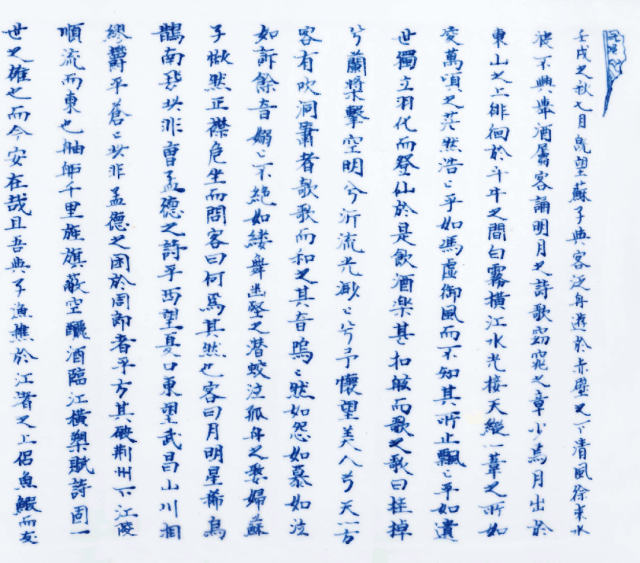 壬戌之秋七月既望蘇子與客泛舟遊於赤壁之下清風徐來水
波不興舉酒屬客誦明月之詩歌窈窕之章少焉月出於
東山之上徘徊於斗牛之間白霧橫江水光接天縱一葦之所如
凌萬頃之茫然浩〻乎如馮虛御風而不知其所止飄〻乎如遺
世獨立羽化而登仙於是飲酒樂甚扣舷而歌之歌曰桂棹
兮蘭槳擊空明兮泝流光渺〻兮予懷望美人兮天一方
客有吹洞簫者歌歌而和之其音嗚〻然如怨如慕如泣
如訴餘音嫋〻不絕如縷舞幽壑之潛蛟泣孤舟之嫠婦蘇
子愀然正襟危坐而問客曰何為其然也客曰月明星稀烏
鵲南飛此非曹孟德之詩乎西望夏口東望武昌山川相
繆鬱乎蒼〻此非孟德之困於周郎者乎方其破荆州下江陵
順流而東也舳舻千里旌旗蔽空釃酒臨江橫槊賦詩固一
世之雄也而今安在哉且吾與子漁樵於江渚之上侶魚鰕而友